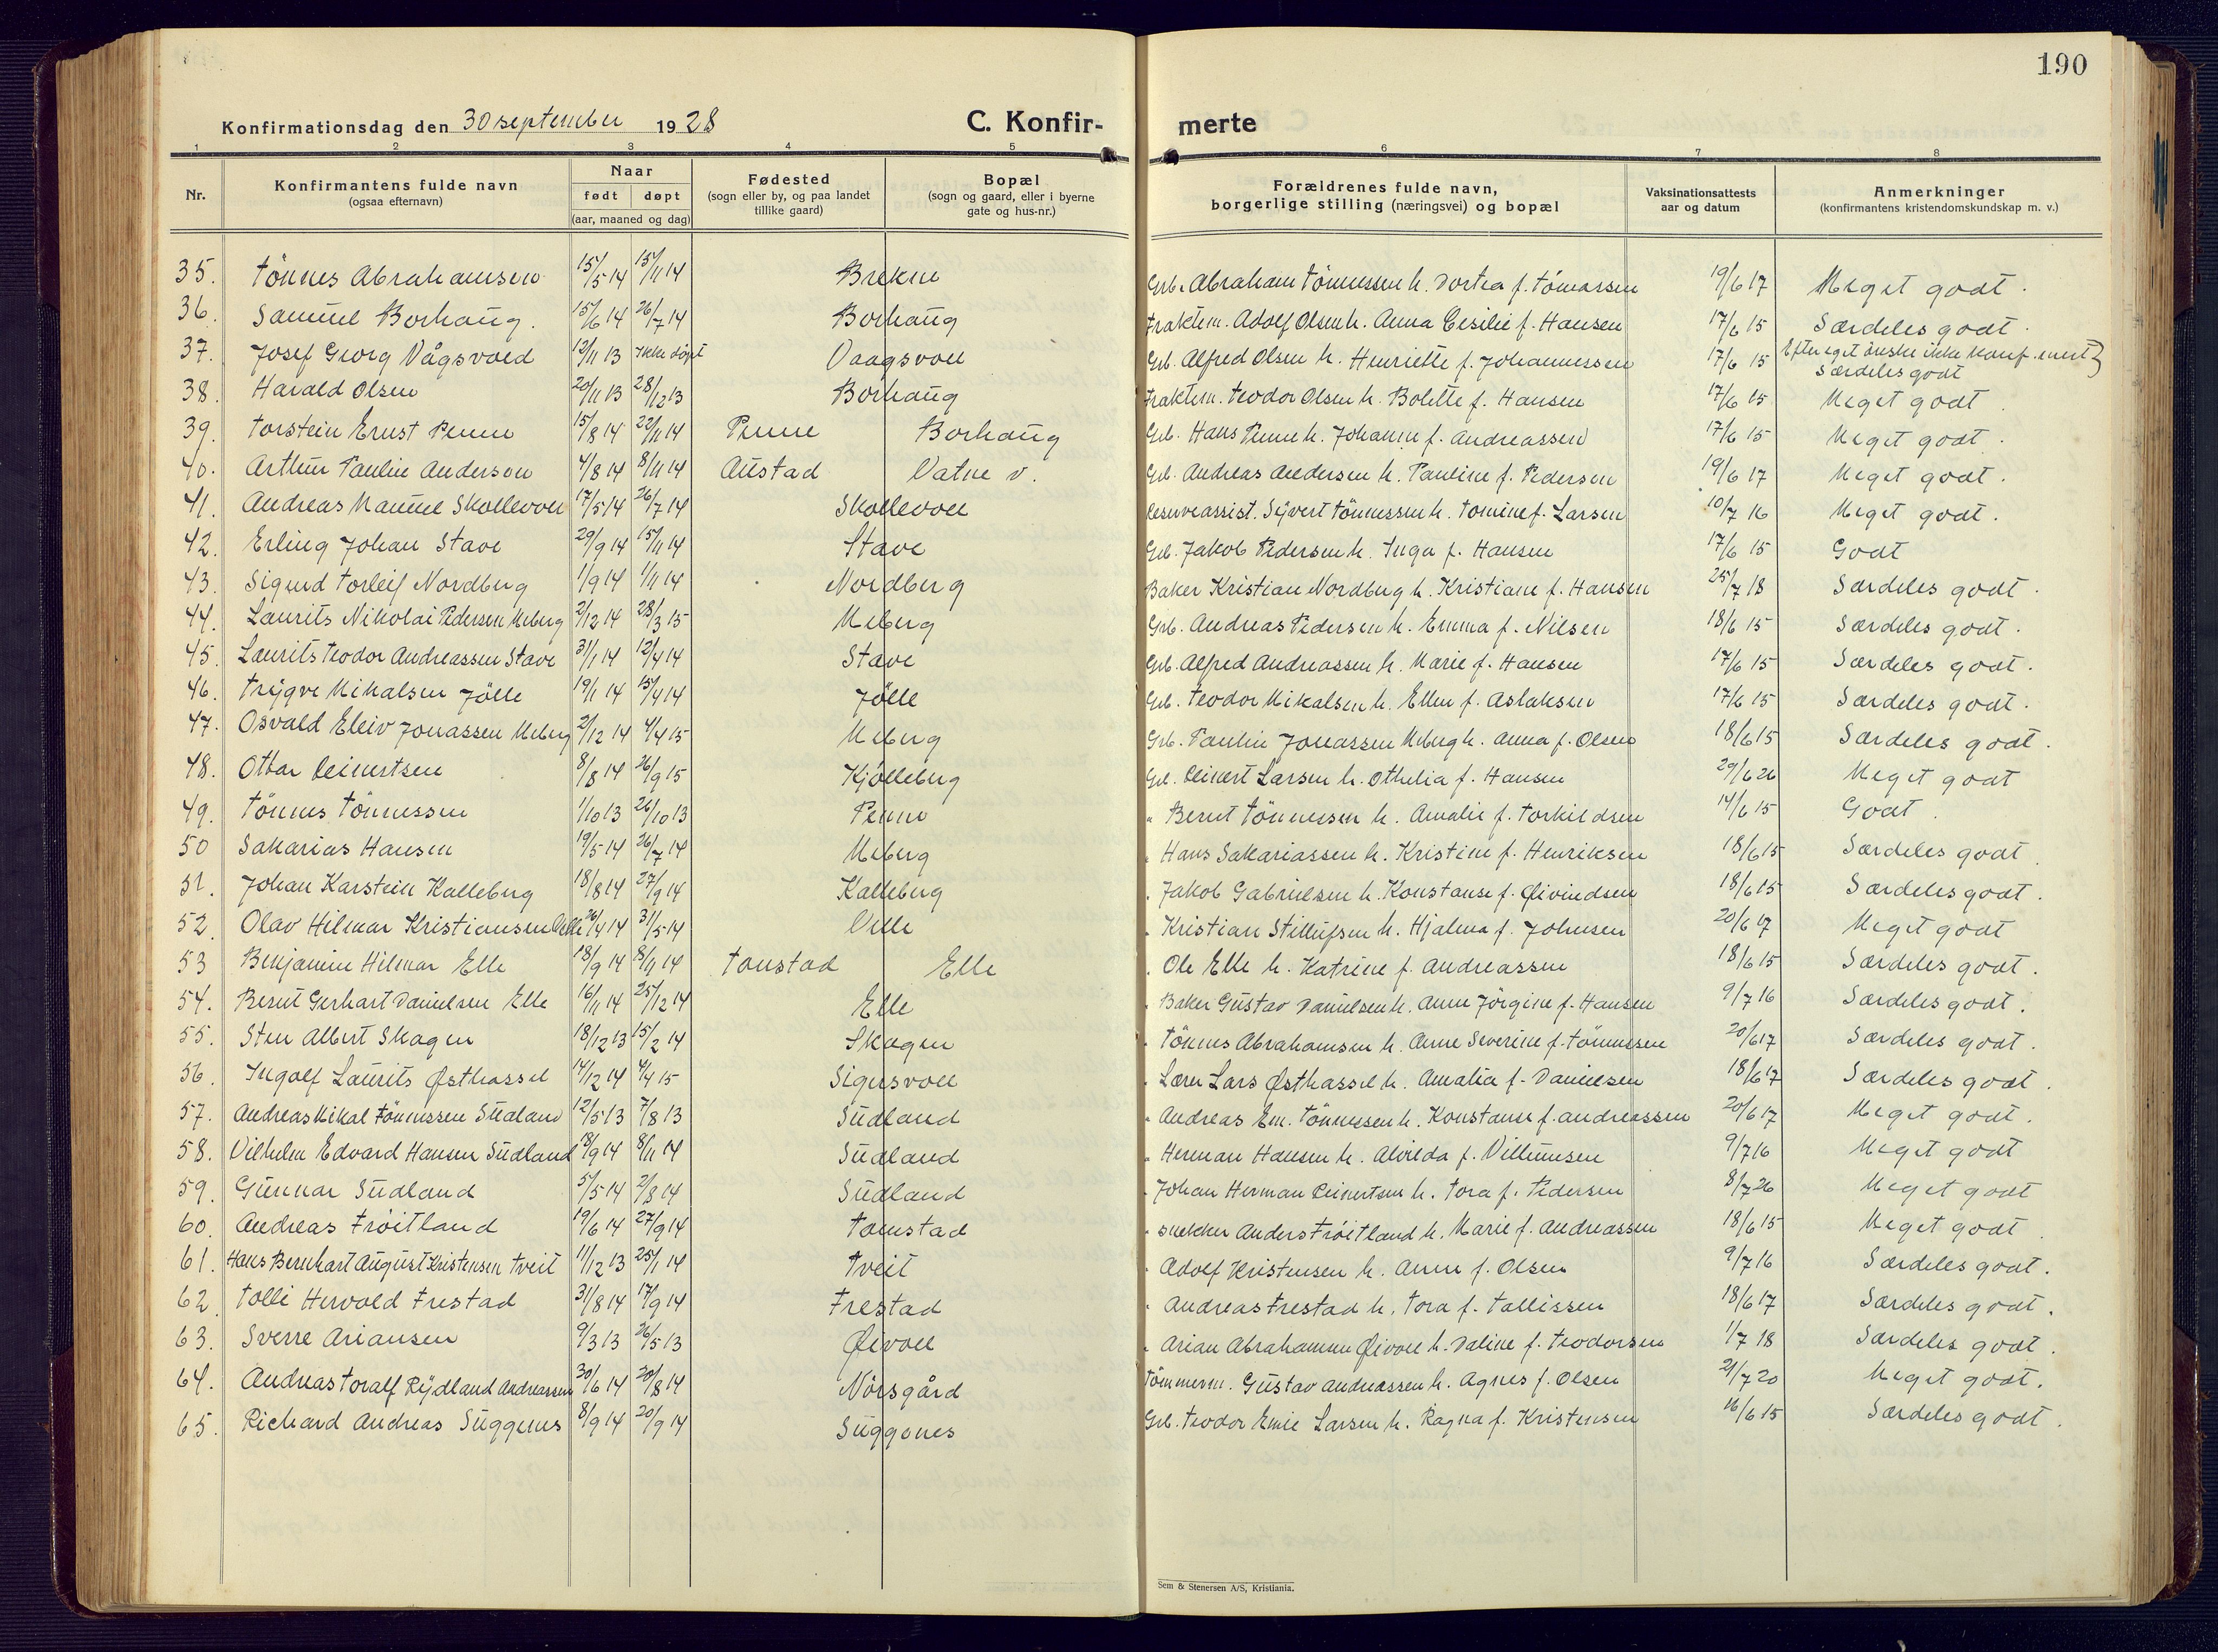 190
Konfirmationsdag den 30 september 1928 C. Konfir- merte
1 2 3 4 5 6 7 8
Nr. Konfirmantens fulde navn (ogsaa efternavn) Naar født døpt (aar, maaned og dag) Fødested (sogn eller by, og paa landet tillike gaard) Bopæl (sogn og gaard, eller i byerne gate og hus-nr.) Forældrenes fulde navn, borgerlige stilling (næringsvei) og bopæl Vaksinationsattests aar og datum Anmerkninger (konfirmantens kristendomskundskap m. v.)
35. Tönnes Abrahamsen 15/5 14 15/11 14 Brekne Grb. Abraham Tönnessen h. Dortea f. Tomassen 19/6 17 Meget godt.
36. Samuel Borhaug. 15/6 14 26/7 14 Borhaug Fraktem. Adolf Olsen h. Anna Cesilie f. Hansen 17/6 15 Særdeles godt.
37. Josef Georg Vågsvold 12/11 13 Ikke döpt Vaagsvoll Grb. Alfred Olsen h. Henriette f. Johannessen 17/6 15 Efter eget önske ikke konf.mert} Særdeles godt
38. Harald Olsen 20/11 13 28/12 13 Borhaug Fraktem. Teodor Olsen h. Bolette f. Hansen 17/6 15 Meget godt
39. Torstein Ernst Penne 15/8 14 22/11 14 Penne Borhaug Grb. Hans Penne h. Johanne f. Andreassen 17/6 15 Meget godt.
40. Arthur Paulin Andersen 4/8 14 8/11 14 Austad Vatne v. Grb. Andreas Andersen h. Pauline f. Pedersen 19/6 17 Meget godt.
41. Andreas Manuel Skollevoll 17/5 14 26/7 14 Skollevoll Reserveassist. Syvert Tönnessen h. Tomine f. Larsen 10/7 16 Meget godt.
42. Erling Johan Stave 29/9 14 15/11 14 Stave Grb. Jakob Pedersen h. Inga f. Hansen 17/6 15 Godt
43. Sigurd Torleif Nordberg 1/9 14 1/11 14 Nordberg Baker Kristian Nordberg h. Kristiane f. Hansen 25/7 18 Særdeles godt.
44. Laurits Nikolai Pedersen Meberg 2/12 14 28/3 15 Meberg Grb. Andreas Pedersen h. Emma f. Nilsen 18/6 15 Særdeles godt.
45. Laurits Teodor Andreassen Stave 31/1 14 12/4 14 Stave Grb. Alfred Andreassen h. Marie f. Hansen 17/6 15 Særdeles godt.
46. Trygve Mikalsen Jölle 19/1 14 15/4 14 Jölle Grb. Teodor Mikalsen h. Ellen f. Aslaksen 17/6 15 Særdeles godt.
47. Osvald Eleiv Jonassen Meberg 2/12 14 4/4 15 Meberg Grb. Paulin Jonassen Meberg h. Anna f. Olsen 18/6 15 Særdeles godt.
48. Ottar Reinertsen 8/8 14 26/9 15 Kjølleberg Grb. Reinert Larsen h. Othelia f. Hansen 29/6 26 Meget godt
49. Tönnes Tönnessen 1/10 13 26/10 13 Penne " Bernt Tönnessen h. Amalie f. Torkildsen 14/6 15 Godt.
50 Sakarias Hansen 19/5 14 26/7 14 Meberg " Hans Sakariassen h. Kristine f. Henriksen 18/6 15 Særdeles godt.
51. Johan Karstein Kalleberg 18/8 14 27/9 14 Kalleberg " Jakob Gabrielsen h. Konstanse f. Øivindsen 18/6 15 Særdeles godt.
52. Olav Hilmar Kristiansen Velle 26/4 14 31/5 14 Velle " Kristian Stillufsen h. Hjalma f. Johnsen 20/6 17 Meget godt
53 Benjamin Hilmar Elle 18/9 14 8/11 14 Tonstad Elle " Ole Elle h. Katrine f. Andreassen 18/6 15 Særdeles godt.
54. Bernt Gerhart Danielsen Elle 16/11 14 25/12 14 Elle " Baker Gustav Danielsen h. Anne Jörgine f. Hansen 9/7 16 Særdeles godt.
55. Sten Albert Skagen 18/12 13 15/2 14 Skagen " Tönnes Abrahamsen h. Anne Severine f. Tönnessen 20/6 17 Særdeles godt.
56. Ingolf Laurits Østhassel 14/12 14 4/4 15 Sigersvoll " Lærer Lars Østhassel h. Amalia f. Danielsen 18/6 17 Særdeles godt.
57. Andreas Mikal Tönnessen Sudland 12/5 13 7/8 13 Sudland " Andreas Em. Tönnessen h. Konstanse f. Andreassen 20/6 17 Meget godt.
58. Vilhelm Edvard Hansen Sudland 18/9 14 8/11 14 Sudland " Herman Hansen h. Alvilda f. Villumsen 9/7 16 Meget godt
59. Gunnar Sudland 5/5 14 2/8 14 Sudland " Johan Herman Reinertsen h. Tora f. Pedersen 8/7 26 Meget godt
60. Andreas Tröitland 19/6 14 27/9 14 Tomstad " snekker Anders Tröitland h. Marie f. Andreassen 18/6 15 Meget godt.
61. Hans Bernhart August Kristensen Tveit 11/12 13 25/1 14 Tveit " Adolf Kristensen h. Anne f. Olsen 9/7 16 Særdeles godt.
62 Tolli Hervold Trestad 31/8 14 17/9 14 Trestad " Andreas Trestad h. Tora f. Tallissen 18/6 17 Særdeles godt.
63. Sverre Ariansen 9/3 13 26/5 13 Øivoll " Arian Abrahamsen Øivoll h. Valine f. Teodorsen 1/7 18 Særdeles godt.
64. Andreas Toralf Rydland Andreassen 30/6 14 20/8 14 Nörsgård Tömmerm. Gustav Andreassen h. Agnes f. Olsen 21/7 20 Meget godt.
65. Richard Andreas Suggenes 8/9 14 20/9 14 Suggenes Grb. Teodor Emil Larsen h. Ragna f. Kristensen 16/6 15 Særdeles godt.
Sem & Stenersen A/S, Kristiania.